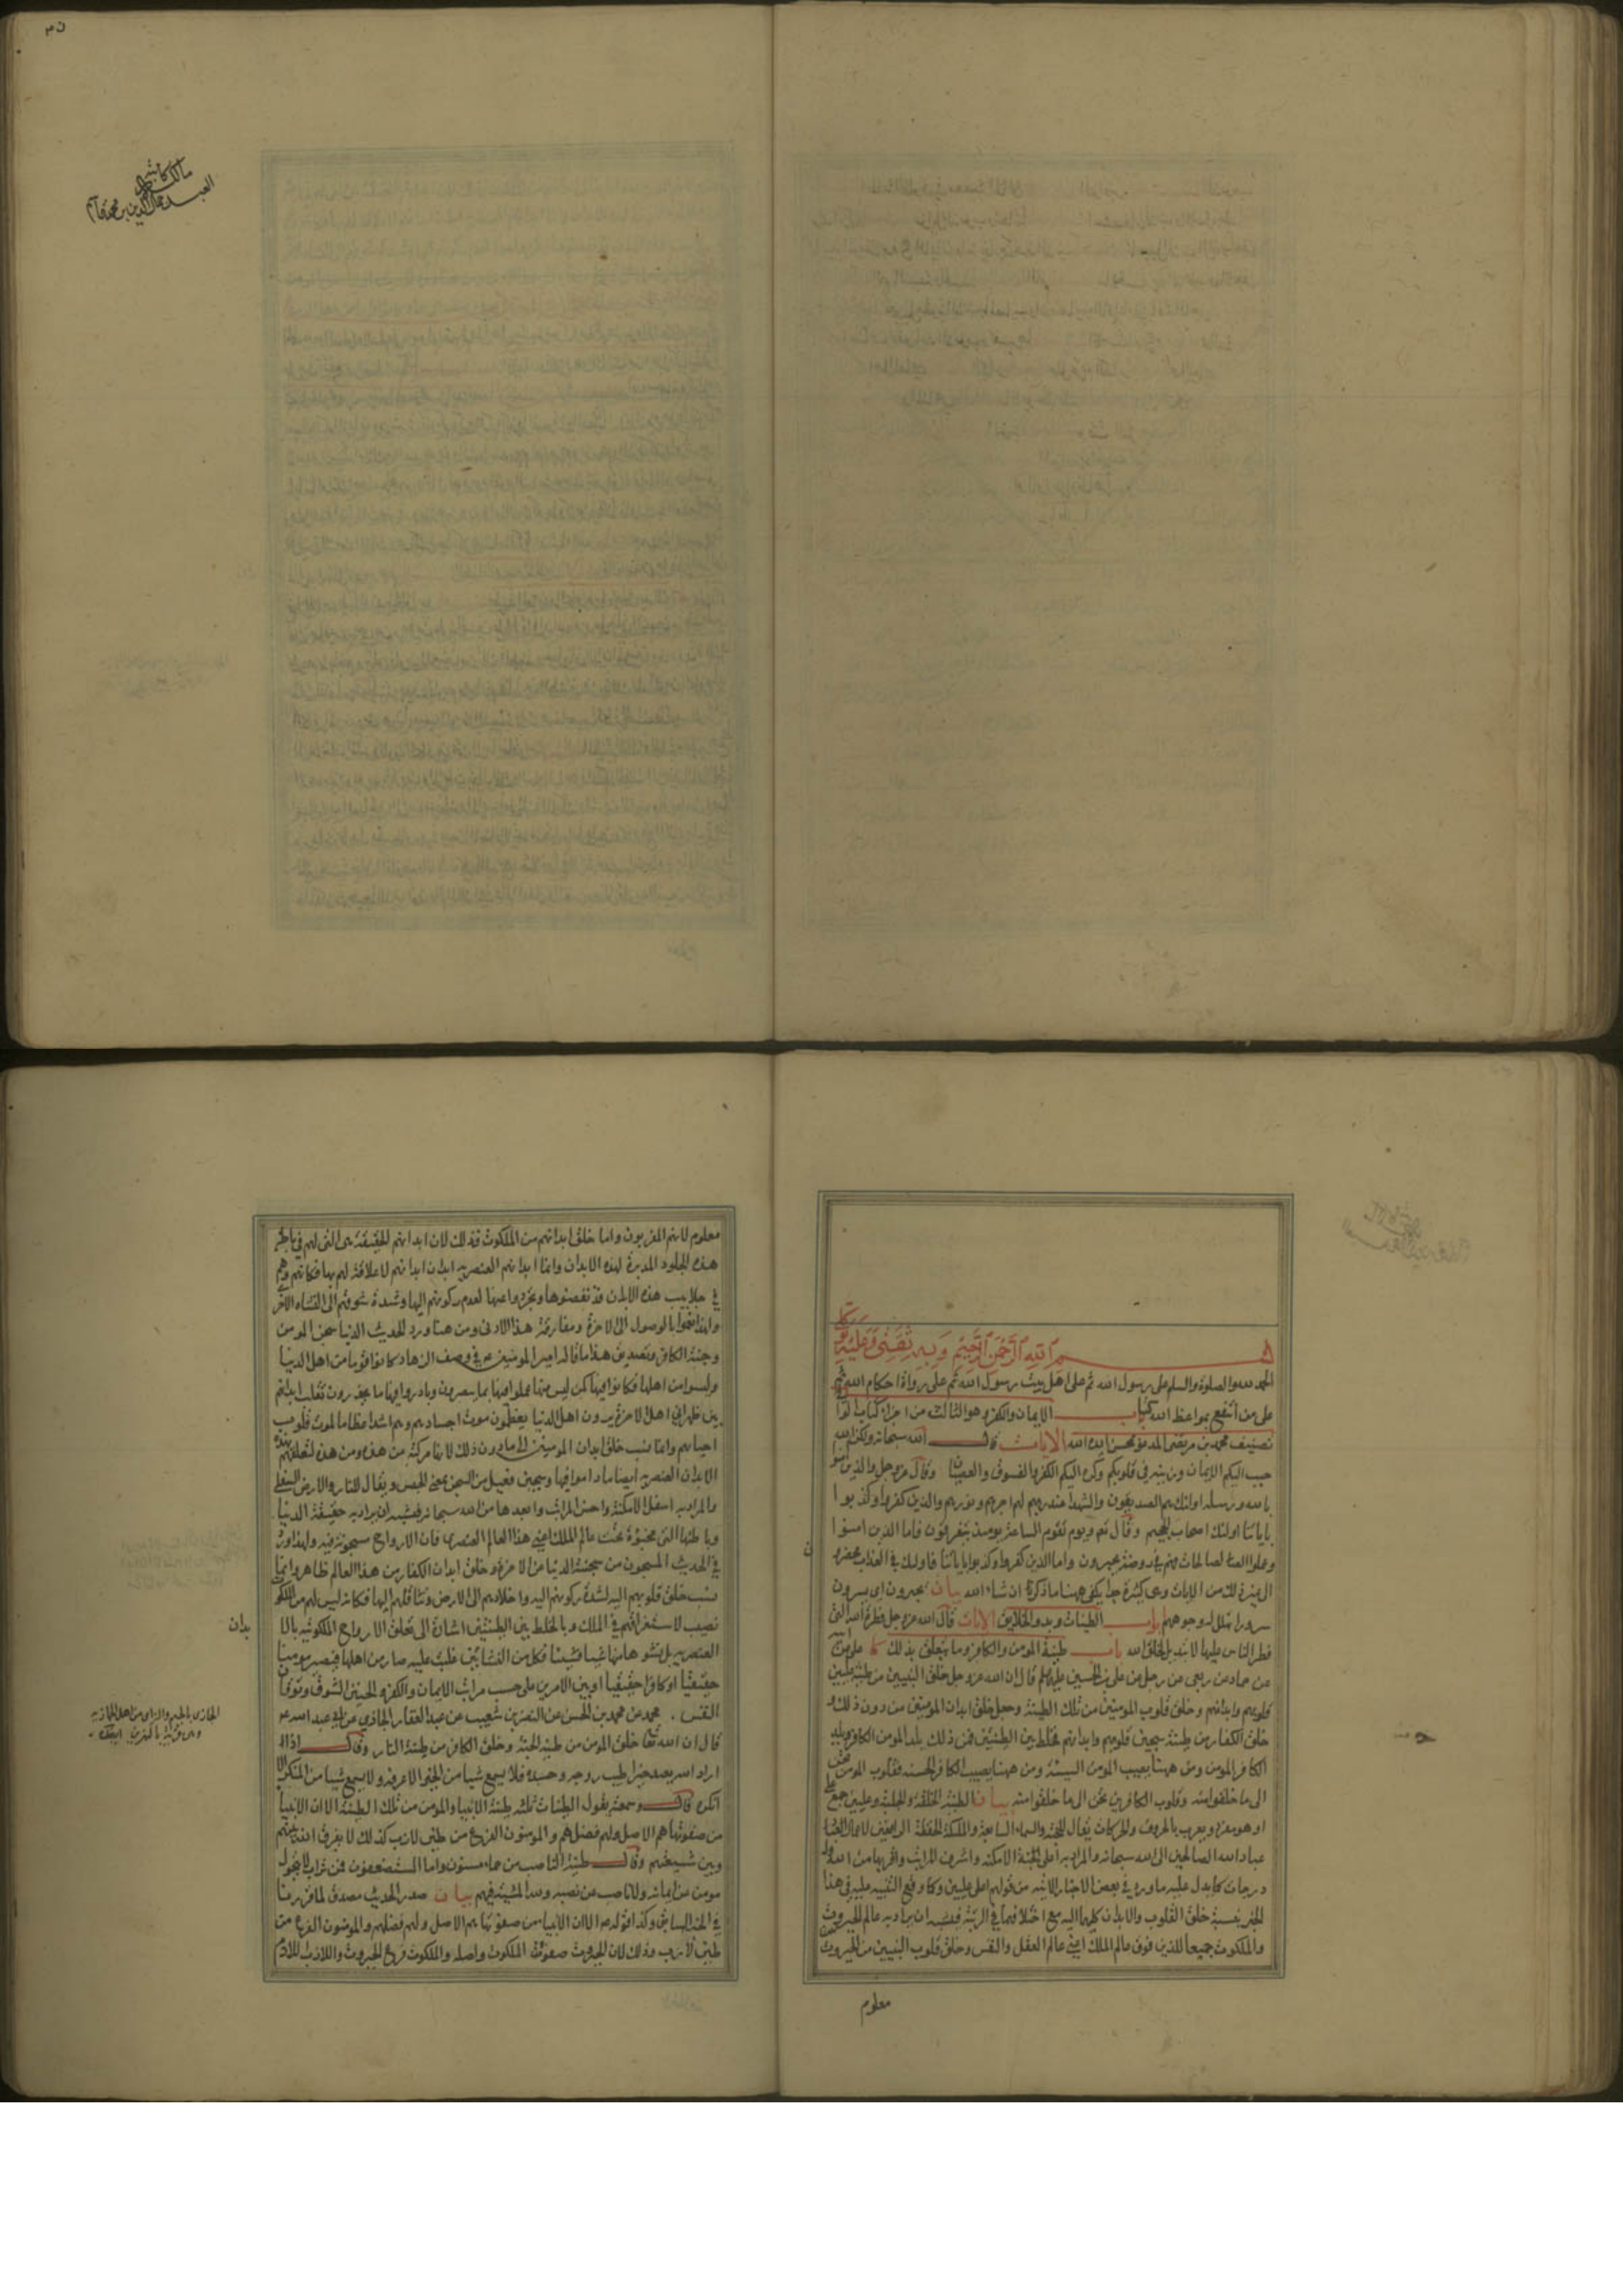 ٣٥
مالك كاتبه
العبد جمال الدين بن محمد
بسم الله الرحمن الرحيم وبه ثقتي وعليه
الحمد لله والصلوة والسلم على رسول الله ثم على اهل بيت رسول الله ثم على رواة احكام الله ثم
على من انتفع بمواعظ الله كتاب الايمان والكفر وهو الثالث من اجزاء كتاب الوا
تصنيف محمد بن مرتضى المدعو بمحسن ايده الله الايات قال الله سبحانه ولكن الله
حبب اليكم الايمان وزينه في قلوبكم وكره اليكم الكفر والفسوق والعصيان وقال عز وجل والذين امنوا
بالله ورسله اولئك هم الصديقون والشهدا عند ربهم لهم اجرهم ونورهم والذين كفروا وكذبوا
باياتنا اولئك اصحاب الجحيم وقال تع ويوم تقوم الساعة يومئذ يتفرقون فاما الذين امنوا
وعملوا الصالحات فهم في روضة يحبرون واما الذين كفروا وكذبوا باياتنا فاولئك في العذاب محضرو
الى غير ذلك من الايات وهي كثيرة جدا يكفي ههنا ما ذكرنا ان شاء الله بيان يحبرون اي يسرون
سرورا تهلل له وجوههم باب الطينات وبدو الخلايق الايات قال الله عز وجل فطرة الله التي
فطر الناس عليها لا تبديل لخلق الله باب طينة المومن والكافر وما يتعلق بذلك كا علي عن ابيه
عن حماد عن ربعي عن رجل عن علي بن الحسين عليهما السلم قال ان الله عز وجل خلق النبيين من طينة عليين
قلوبهم وابدانهم وخلق قلوب المومنين من تلك الطينة وجعل خلق ابدان المومنين من دون ذلك و
خلق الكفار من طينة سجين قلوبهم وابدانهم فخلط بين الطينتين فمن ذلك يلد المومن الكافر ويلد
الكافر المومن ومن ههنا يصيب المومن السيئة ومن ههنا يصيب الكافر الحسنه فقلوب المومنين تحن
الى ما خلقوا منه وقلوب الكافرين تحن الى ما خلقوا منه بيان الطينة الخلقة والجبلة وعليين جمع علي
او هو مفرد ويعرب بالحروف والحركات يقال للجنة والسماء السابعة والملائكة الحفظة الرافعين لاعمال
عباد الله الصالحين الى الله سبحانه والمراد به اعلى الجنة الامكنه واشرف المراتب واقربها من الله وله
درجات كما يدل عليه ما ورد في بعض الاخبار الاتيه من قولهم اعلى عليين وكما وقع التنبيه عليه في هذا
الخبر بنسبة خلق القلوب والابدان كليهما اليه مع اختلافهما في الرتبة فيشبه ان يراد به عالم الجبروت
والملكوت جميعا اللذين فوق عالم الملك اعني عالم العقل والنفس وخلق قلوب النبيين من الجبروت
معلوم
معلوم لانهم المقربون واما خلق ابدانهم من الملكوت فذلك لان ابدانهم الحقيقة هى التى لهم في باطن
هذه الجلود المدبرة لهذه الابدان وانما ابدانهم العنصريه ابدان ابدانهم لا علاقة لهم بها فكانهم وهم
في جلابيب هذه الابدان قد نفضوها وتجردوا عنها لعدم ركونهم اليها وشدة شوقهم الى النشاة الاخرى
ولهذا نعموا بالوصول الى الاخرة ومفارقة هذا الادنى ومن هنا ورد الحديث الدنيا سجن المومن
وجنة الكافر وتصديق هذا ما قاله امير المومنين ع في وصف الزهاد كانوا قوما من اهل الدنيا
وليسوا من اهلها فكانوا فيها كمن ليس منها عملوا فيها بما يبصرون وبادروا فيها ما يحذرون تقلب ابدانهم
بين ظهراني اهل الاخرة يرون اهل الدنيا يعظمون موت اجسادهم وهم اشد اعظاما لموت قلوب
احيائهم وانما نسب خلق ابدان المومنين الى ما دون ذلك لانها مركبة من هذه ومن هذه لتعلقهم بهذه
الابدان العنصريه ايضا ما داموا فيها وسجين فعيل من السجن بمعنى الحبس ويقال للنار والارض السفلى
والمراد به اسفل الامكنة واخس المراتب وابعدها من الله سبحانه فيشبه ان يراد به حقيقة الدنيا
وباطنها التى مخبوءة تحت عالم الملك اعني هذا العالم العنصري فان الارواح مسجونة فيه ولهذا ورد
في الحديث المسجون من سجنته الدنيا عن الاخرة وخلق ابدان الكفار من هذا العالم ظاهر وانما
نسب خلق قلوبهم اليه لشدة ركونهم اليه واخلادهم الى الارض وتثاقلهم اليها فكانه ليس لهم من الملكوت
نصيب لاستغراقهم في الملك وبالخلط بين الطينتين اشارة الى تعلق الارواح الملكوتيه بالا
بدان
العنصريه بل نشوها منها شيئا فشيئا فكل من النشاتين غلبت عليه صار من اهلها فيصير مومنا
حقيقيا او كافرا حقيقيا او بين الامرين على حسب مراتب الايمان والكفر والحنين الشوق وتوقان
النفس . محمد عن محمد بن الحسن عن النضر بن شعيب عن عبد الغفار الجازي عن ابي عبد الله ع
الجازي بالجيم والزاي من اهل الجازيه
وهي قرية بالنهرين
قال ان الله تعا خلق المومن من طينة الجنة وخلق الكافر من طينة النار وقال اذا
اراد الله بعبد خيرا طيب روحه وجسده فلا يسمع شيا من الخير الا عرفه ولا يسمع شيا من المنكر الا
انكره قال وسمعته يقول الطينات ثلثه طينة الانبيا والمومن من تلك الطينة الا ان الانبيا
من صفوتها هم الاصل ولهم فضلهم والمومنون الفرع من طين لازب كذلك لا يفرق الله بينهم
وبين شيعتهم وقال طينة الناصب من حماء مسنون واما المستضعفون فمن تراب لا يتحول
مومن عن ايمانه ولا ناصب عن نصبه ولله المشية فيهم بيان صدر الحديث مصدق لما قررنا
في الخبر السابق وكذا قوله ع الا ان الانبياء من صفوتها هم الاصل ولهم فضلهم والمومنون الفرع من
طين لازب وذلك لان الجبروت صفوة الملكوت واصله والملكوت فرع الجبروت واللازب اللازم